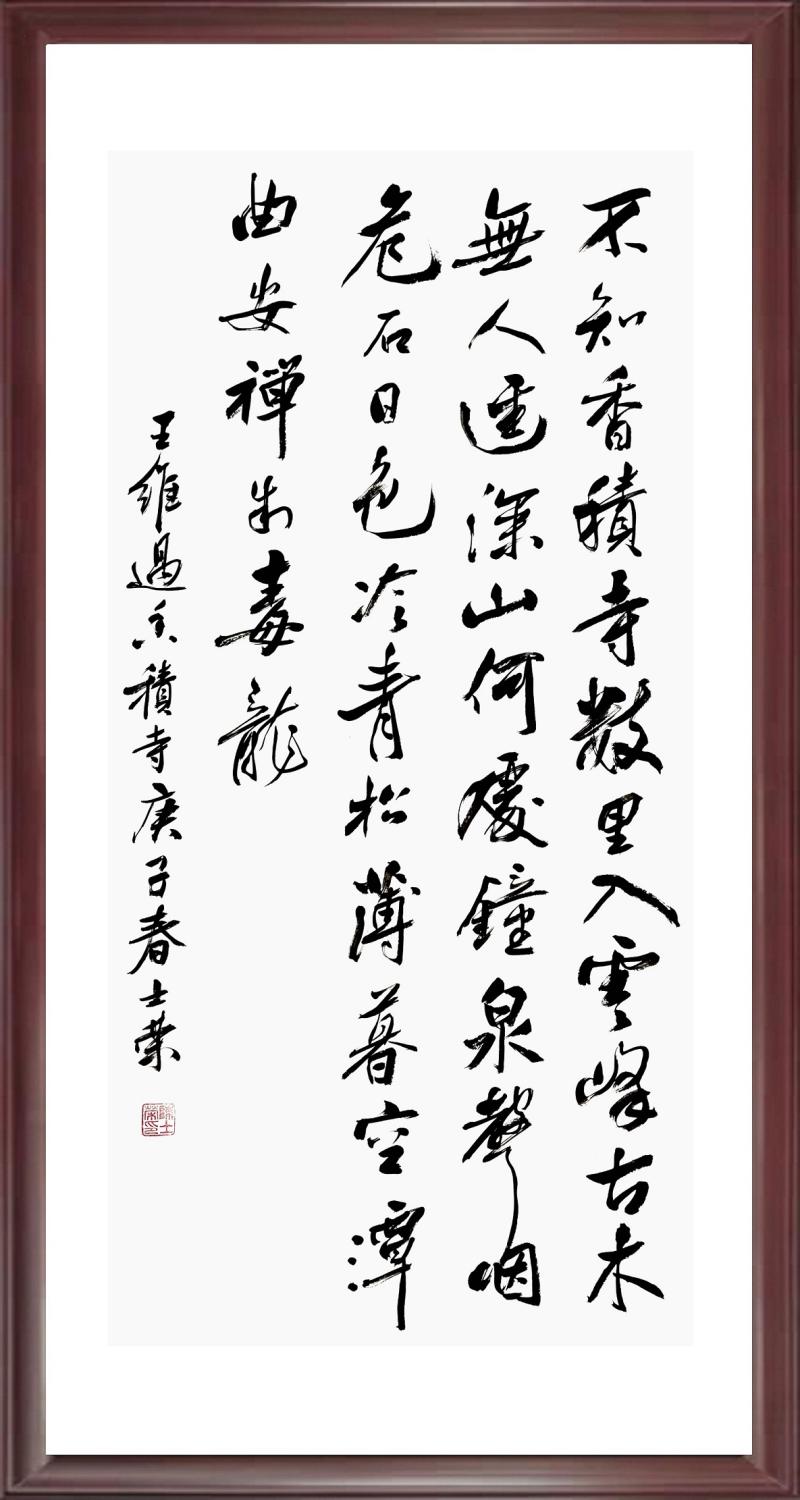 不知香積寺數里入雲峰古木
無人逕深山何處鐘泉聲咽
危石日色冷青松薄暮空潭
曲安禪制毒龍
王維過香積寺庚子春士榮
陳士榮印